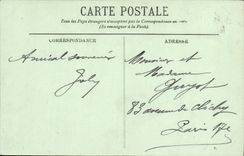 CARTE POSTALE
Tous les Pays étrangers n'acceptent pas la Correspondance au
(Se renseigner à la Poste)
CORRESPONDANCE
ADRESSE
Amical souvenir
Joly
Monsieur et
Madame
Guyot
83 avenue de Clichy
Paris 17e